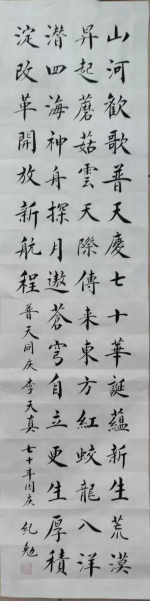 山河歓歌普天慶七十華誕蘊新生荒漠
昇起蘑菇雲天際傳来東方紅蛟龍八洋
潜四海神舟探月遨蒼穹自立更生厚積
淀改革開放新航程
普天同庆 李天真 七十年国庆 纪勉